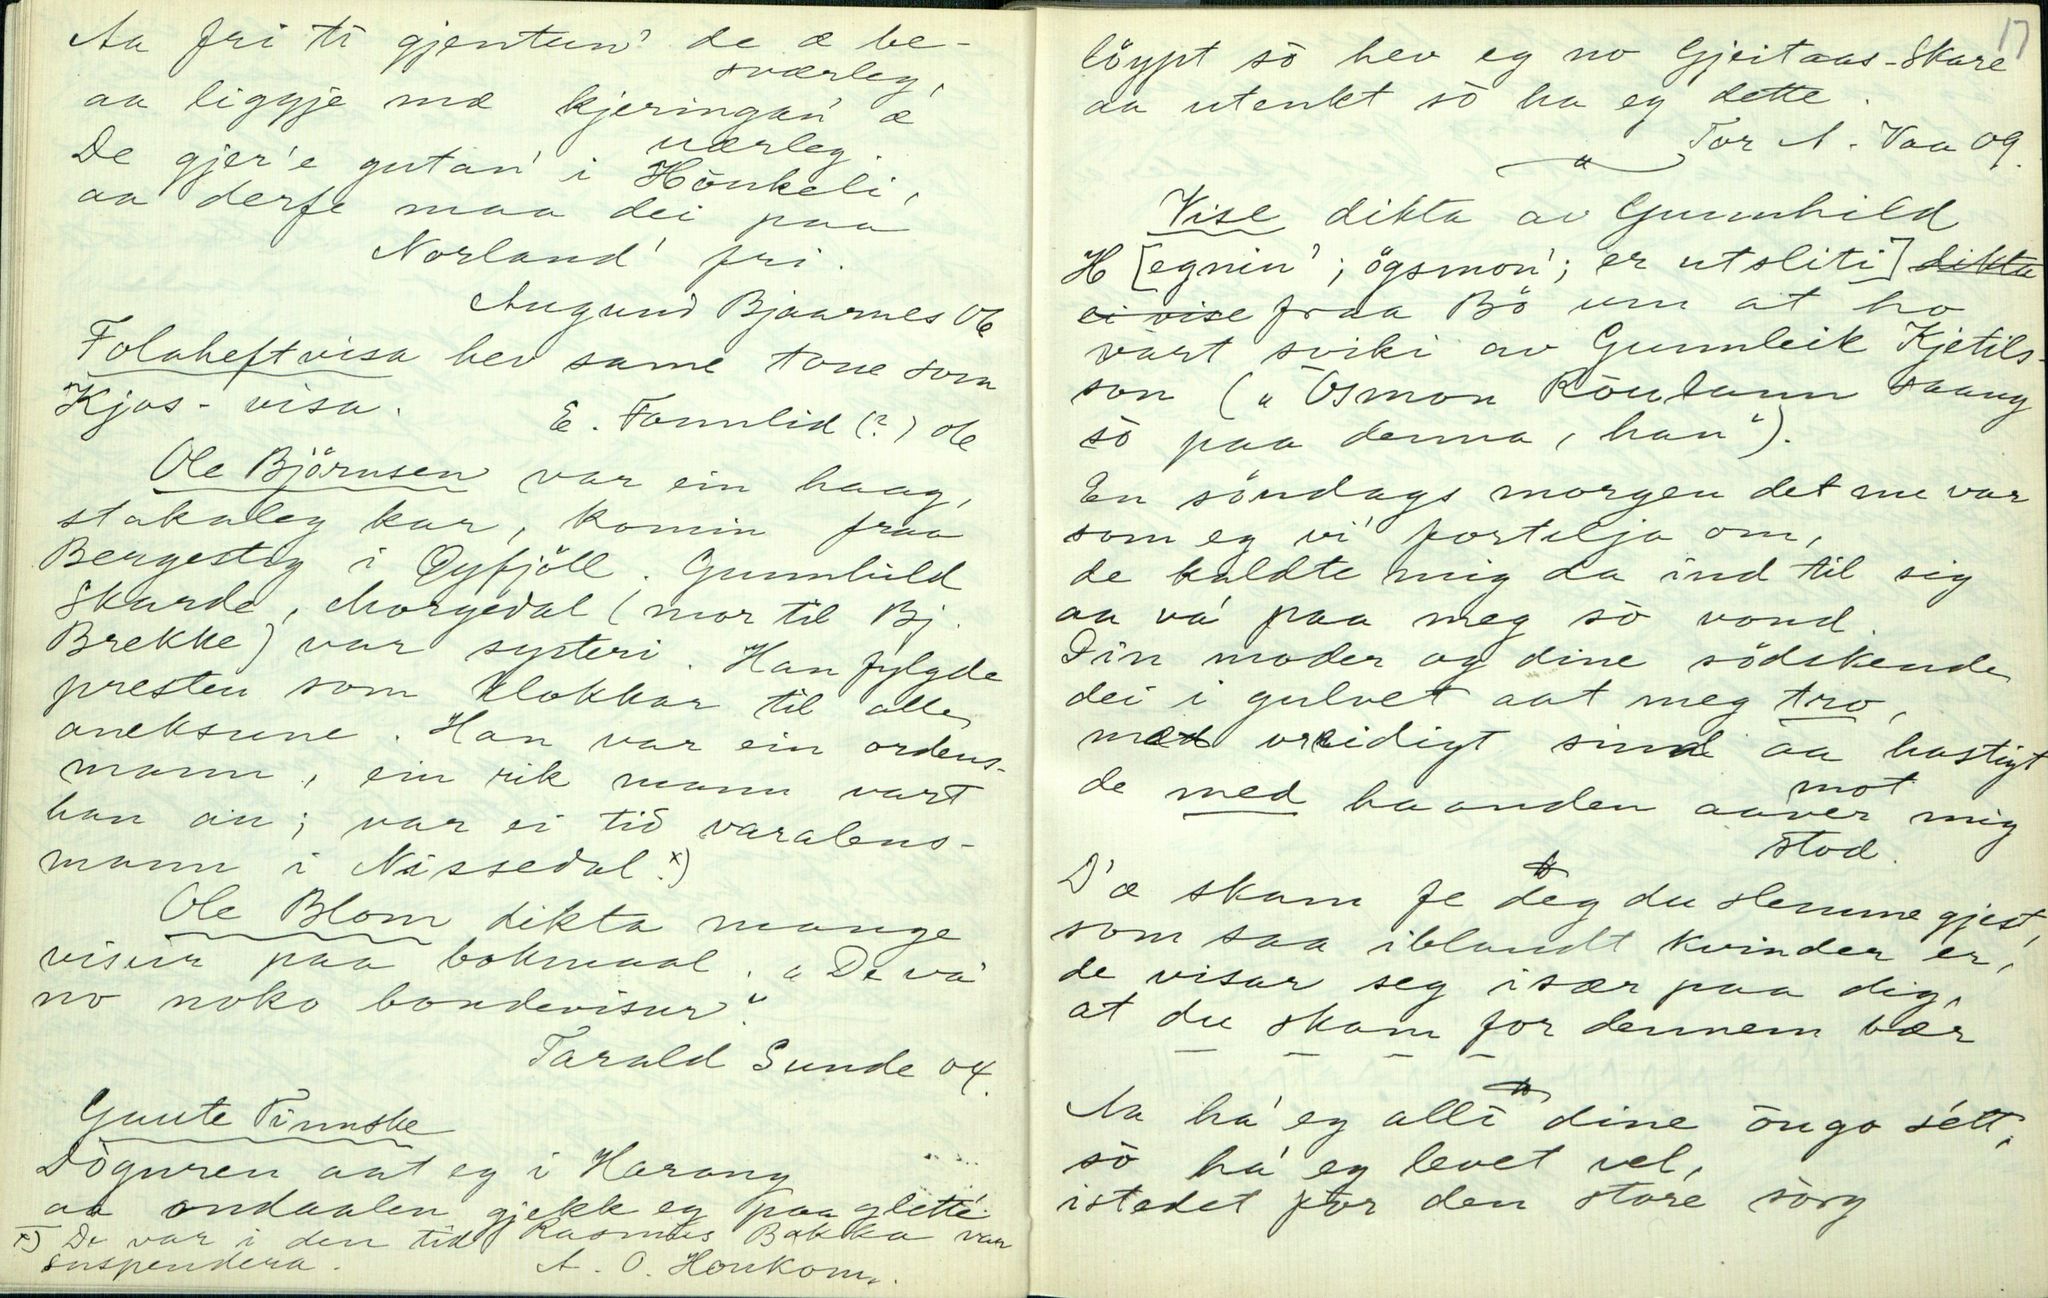 Aa fri ti gjentun' de æ be-
sværleg,
aa liggje mæ kjeringan' æ
uærleg.
De gjer'e gutan' i Hönkeli,
aa derfe maa dei paa
Norland' fri.
Augund Bjaarnes 06
Folaheftvisa hev same tone som
Kjos-visa.
E. Fonnlid (?) 06
Ole Björnsen var ein haag,
stakaleg kar, komin fraa
Bergestig i Öyfjöll. Gunnhild
Skarde, Morgedal (mor til Bj.
Brekke) var systeri. Han fylgde
presten som klokkar til alle
aneksune. Han var ein ordens-
mann, ein rik mann vart
han an; var ei tid varalens-
mann i Nissedal. x)
Ole Blom dikta mange
visur paa bokmaal. "De va'
no noko bondevisur."
Tarald Sunde 04.
Gunte Tinnske
Döguren aat eg i Harang
aa ondaalen gjekk eg paa glette.
x) De var i den tid Rasmus Bakka var
suspendera.
A. O. Honkom.
17
löypt so hev eg no Gjeitaas-Skare
aa utenkt so ha eg dette.
Tor A. Vaa 09.
Vise dikta av Gunnhild
H [egnin'; ögsmon'; er utsliti] dikta
ei vise fraa Bö um at ho
vart sviki av Gunnleik Kjetils-
son ("Osmon Röulann saang
so paa denna, han").
En söndags morgen det nu var
som eg vi' fortelja om,
de kaldte mig da ind til sig
aa va' paa meg so vond.
Din moder og dine södskende
dei i gulvet aat meg tro,
med vreidigt sind aa hastigt
de med haanden aaver mig
mot
stod.
D'æ skam fe deg du slemme gjest,
som saa iblandt kvinder er,
de visar seg især paa dig,
at du skam for dennem bær
Aa ha' eg alli dine öugo sétt,
so ha' eg levet vel,
istedet for den store sorg